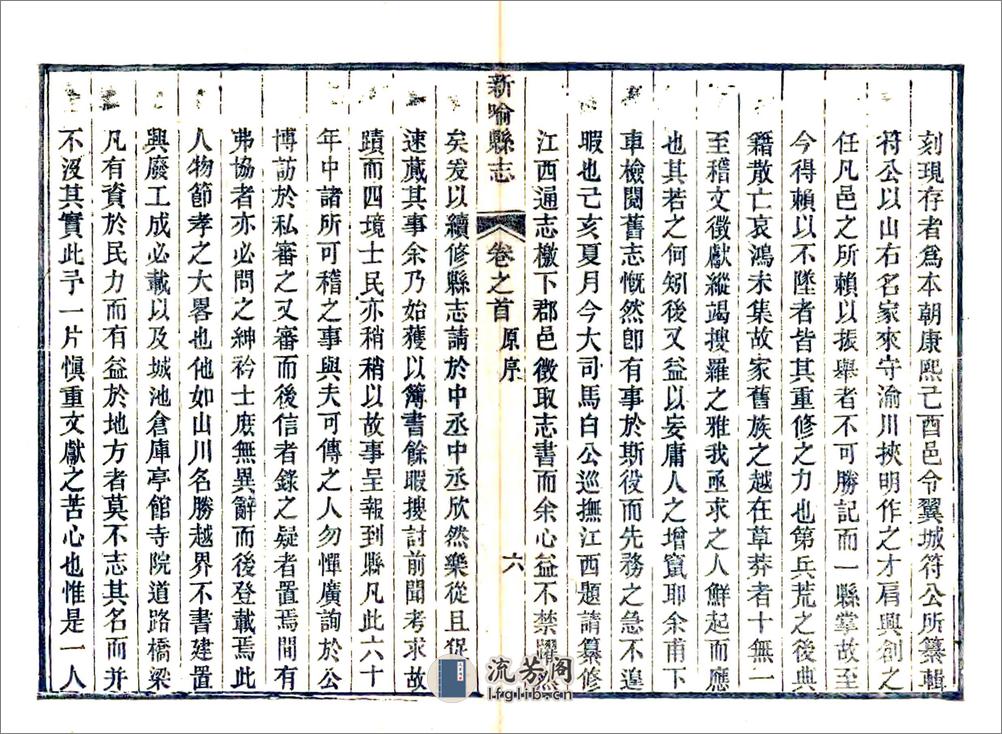 刻現存者爲本朝康熙己酉邑令翼城符公所纂輯
符公以山右名家來守渝川挾明作之才肩興創之
任凡邑之所賴以振舉者不可勝記而一縣掌故至
今得賴以不墜者皆其重修之力也第兵荒之後典
籍散亡哀鴻未集故家舊族之越在草莽者十無一
至稽文徵獻縱竭搜羅之雅我亟求之人鮮起而應
也其若之何矧後又益以妄庸人之增竄耶余甫下
車檢閱舊志慨然卽有事於斯役而先務之急不遑
暇也己亥夏月今大司馬白公巡撫江西題請纂修
江西通志檄下郡邑徵取志書而余心益不禁躍然
新喻縣志
卷之首
原序
六
矣爰以續修縣志請於中丞中丞欣然樂從且促
速蕆其事余乃始獲以簿書餘暇搜討前聞考求故
蹟而四境士民亦稍稍以故事呈報到縣凡此六十
年中諸所可稽之事與夫可傳之人勿憚廣詢於公
博訪於私審之又審而後信者錄之疑者置焉間有
弗協者亦必問之紳衿士庶無異辭而後登載焉此
人物節孝之大畧也他如山川名勝越界不書建置
興廢工成必載以及城池倉庫亭館寺院道路橋梁
凡有資於民力而有益於地方者莫不志其名而并
不沒其實此予一片愼重文獻之苦心也惟是一人
流芳阁
lfglib.cn